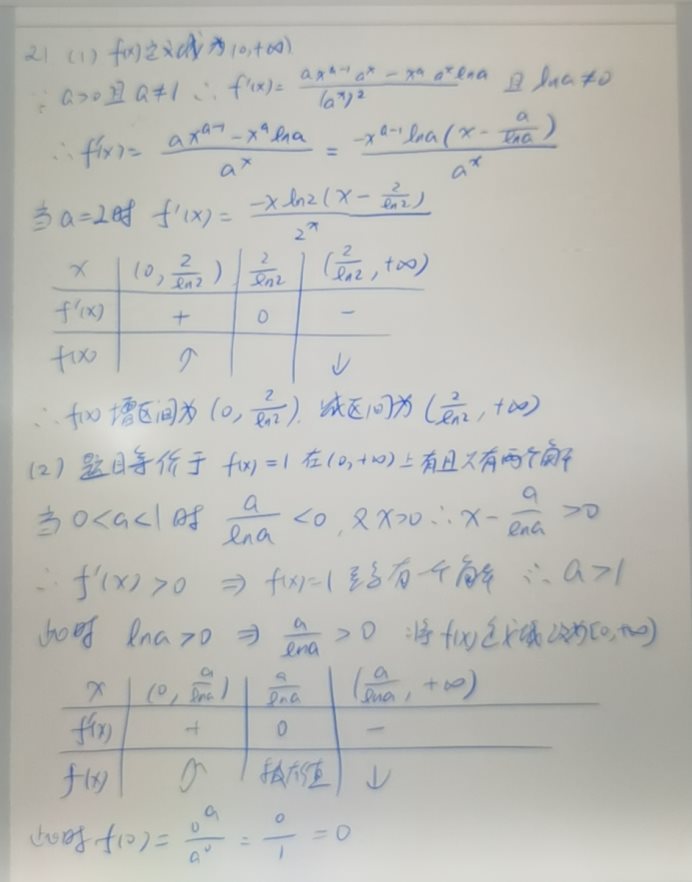 21 (1) f(x)定义域为(0,+∞)
∵ a>0且a≠1 ∴ f'(x)= \frac{ax^{a-1}a^x - x^a a^x lna}{(a^x)^2} 且 lna≠0
∴ f'(x)= \frac{ax^{a-1} - x^a lna}{a^x} = \frac{-x^{a-1}lna(x - \frac{a}{lna})}{a^x}
当a=2时 f'(x)= \frac{-x ln2(x - \frac{2}{ln2})}{2^x}
x | (0, \frac{2}{ln2}) | \frac{2}{ln2} | (\frac{2}{ln2}, +∞)
f'(x) | + | 0 | -
f(x) | ↑ | | ↓
∴ f(x)增区间为(0, \frac{2}{ln2}). 减区间为(\frac{2}{ln2}, +∞)
(2) 题目等价于 f(x)=1 在(0,+∞)上有且只有两个解
当0<a<1时 \frac{a}{lna}<0, 又x>0 ∴ x - \frac{a}{lna} >0
∴ f'(x)>0 ⇒ f(x)=1 至多有一个解 ∴ a>1
此时 lna>0 ⇒ \frac{a}{lna} >0 将f(x)定义域改为[0,+∞)
x | (0, \frac{a}{lna}) | \frac{a}{lna} | (\frac{a}{lna}, +∞)
f'(x) | + | 0 | -
f(x) | ↑ | 极大值 | ↓
此时 f(0)= \frac{0^a}{a^0} = \frac{0}{1} = 0